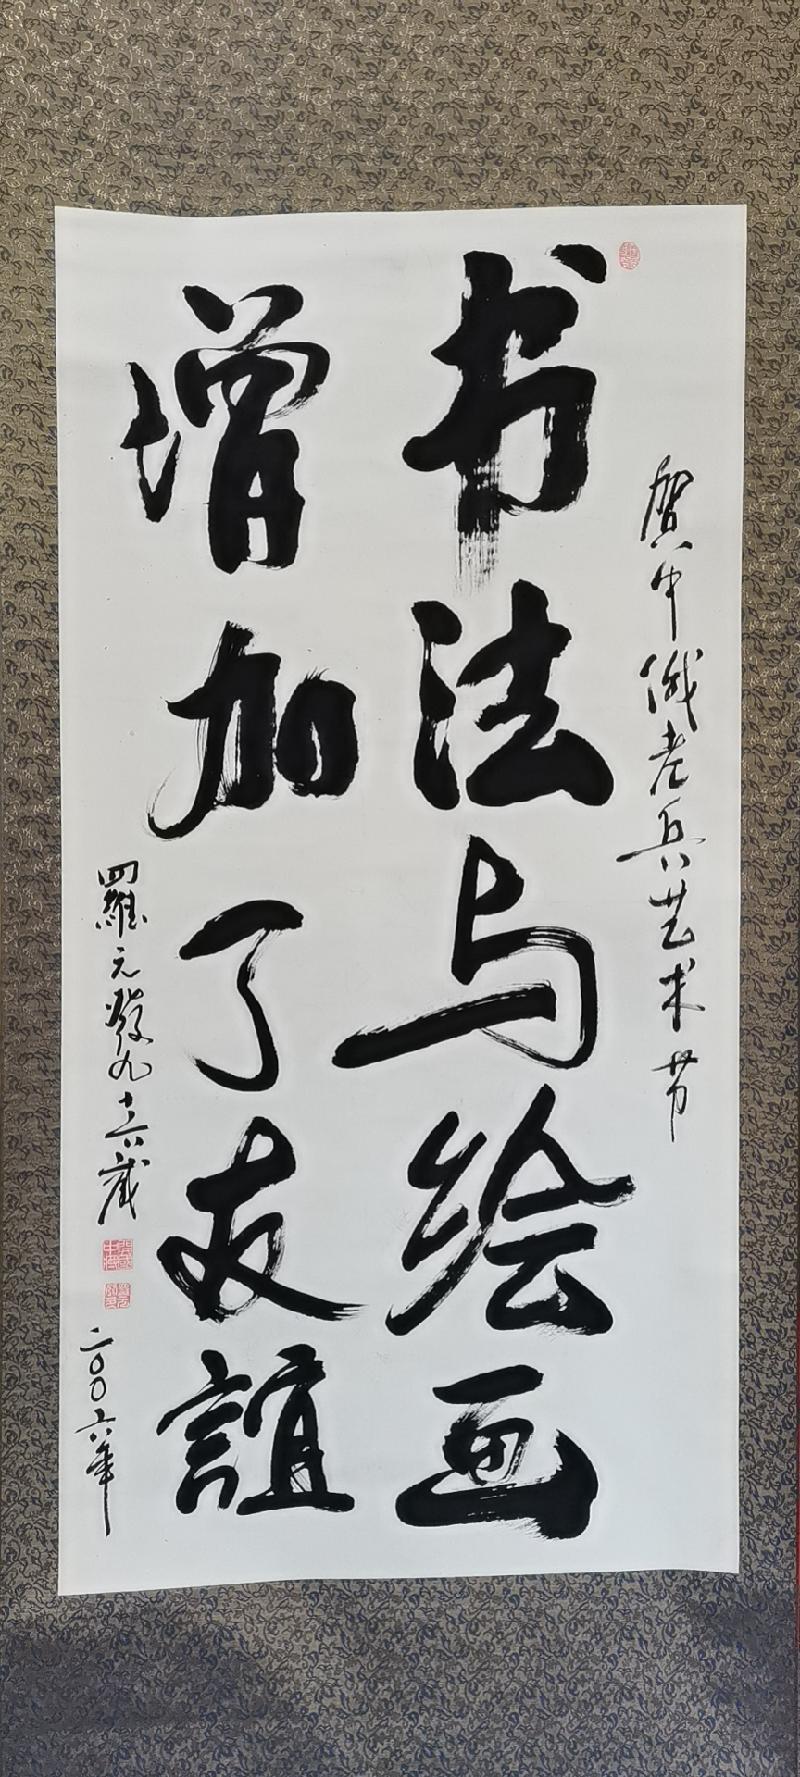 贺中俄老兵艺术节
书法与绘画
增加了友誼
羅元發九十六歲
二〇〇六年